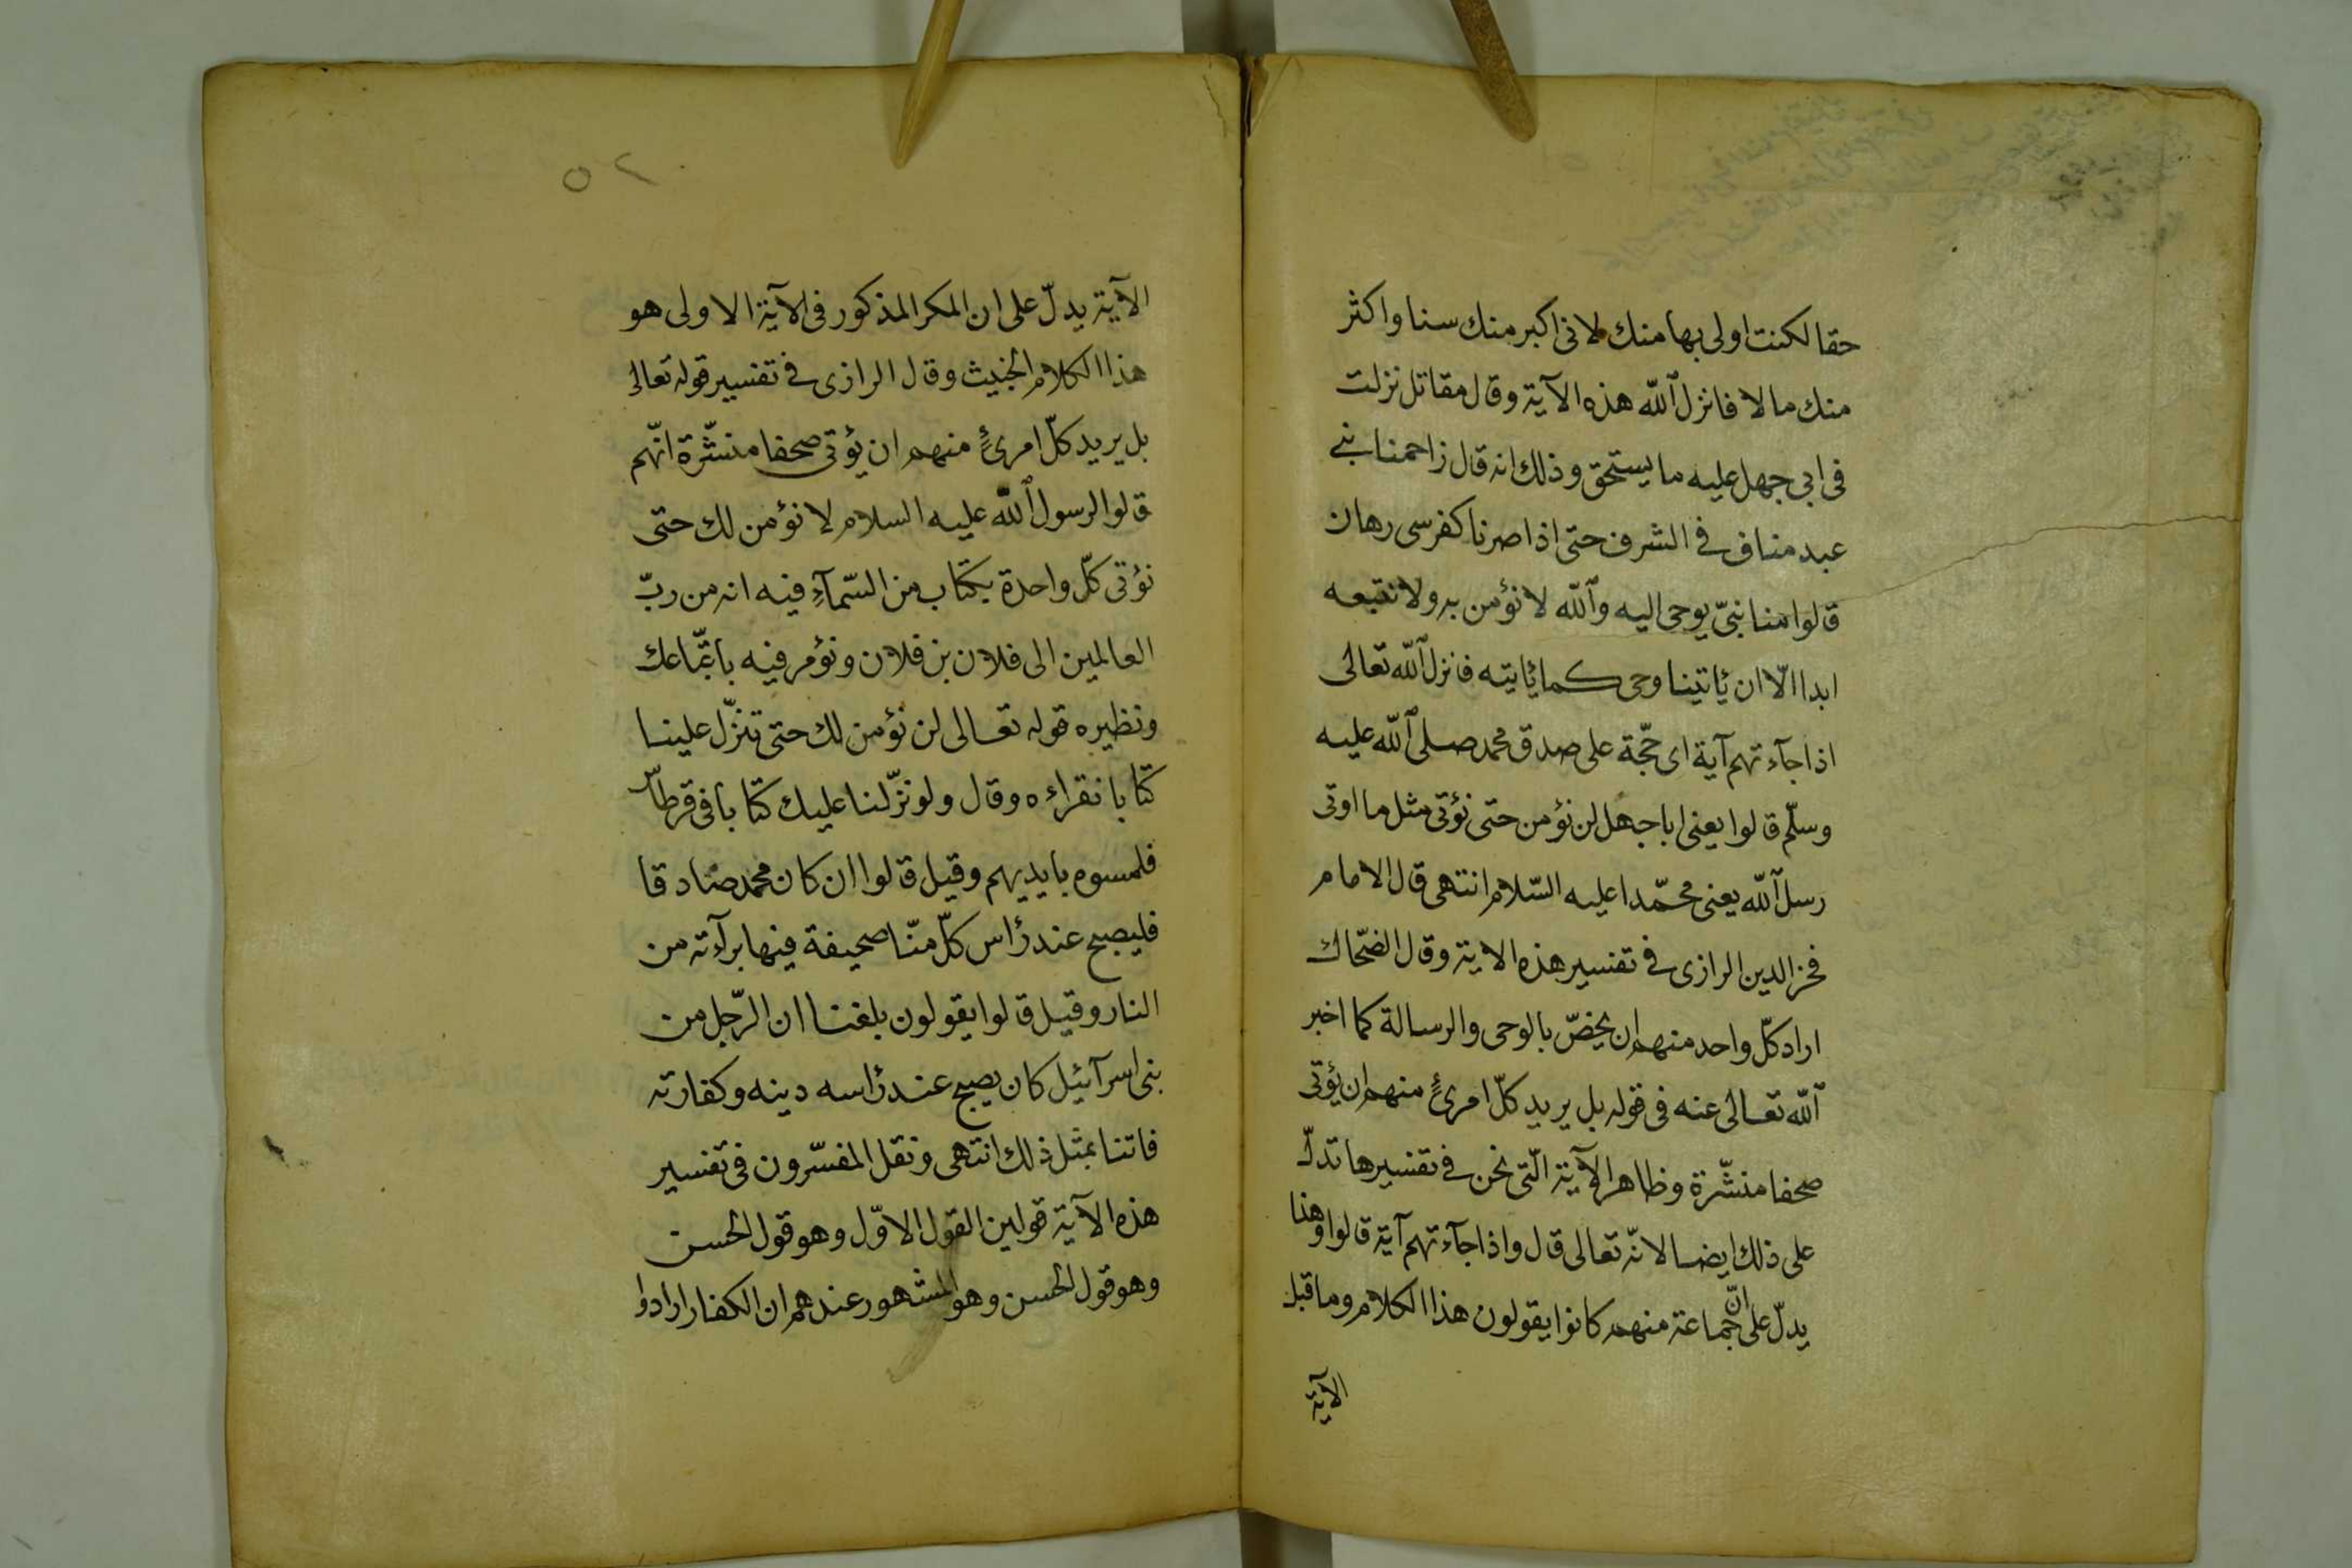 حقا لكنت اولى بها منك لانى اكبر منك سنا واكثر
منك مالا فانزل الله هذه الآية وقال مقاتل نزلت
فى ابى جهل عليه ما يستحق وذلك انه قال زاحمنا بنى
عبد مناف فى الشرف حتى اذا صرنا كفرسى رهان
قالوا منا نبىّ يوحى اليه والله لا نؤمن به ولا نتبعه
ابدا الّا ان ئاتينا وحى كما ئاتيه فانزل الله تعالى
اذا جآءتهم آية اى حجّة على صدق محمد صلى الله عليه
وسلّم قالوا يعنى ابا جهل لن نؤمن حتى نؤتى مثل ما اوتى
رسل الله يعنى محمّدا عليه السّلام انتهى قال الامام
فخر الدين الرازى فى تفسير هذه الاية وقال الضّحاك
اراد كلّ واحد منهم ان يخصّ بالوحى والرسالة كما اخبر
الله تعالى عنه فى قوله بل يريد كلّ امرئٍ منهم ان يؤتى
صحفا منشّرة وظاهر الآية الّتى نحن فى تفسيرها تدلّ
على ذلك ايضا لانّه تعالى قال واذا جآءتهم آية قالوا وهذا
يدلّ على انّ جماعة منهم كانوا يقولون هذا الكلام وما قبل
الآية
٥٢
الآية يدلّ على ان المكر المذكور فى الآية الاولى هو
هذا الكلام الخبيث وقال الرازى فى تفسير قوله تعالى
بل يريد كلّ امرئٍ منهم ان يؤتى صحفا منشّرة انّهم
قالوا لرسول الله عليه السلام لا نؤمن لك حتى
نؤتى كلّ واحدة بكتاب من السّمآءِ فيه انه من ربّ
العالمين الى فلان بن فلان ونؤمر فيه باتّباعك
ونظيره قوله تعالى لن نؤمن لك حتى تنزّل علينا
كتابا نقراءه وقال ولو نزّلنا عليك كتابا فى قرطاس
فلمسوه بايديهم وقيل قالوا ان كان محمد صادقا
فليصبح عند رٔاس كلّ منّا صحيفة فيها برآءته من
النار وقيل قالوا يقولون بلغنا ان الرّجل من
بنى اسرآئيل كان يصبح عند رٔاسه دينه وكفارته
فاتنا بمثل ذلك انتهى ونقل المفسّرون فى تفسير
هذه الآية قولين القول الاوّل وهو قول الحسن
وهو قول الحسن وهو المشهور عندهم ان الكفار ارادوا